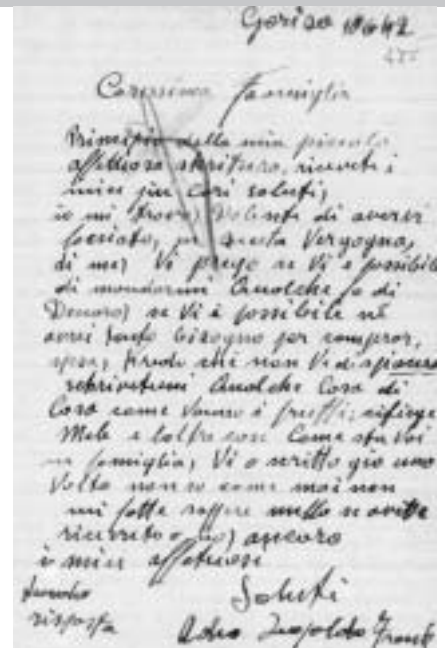 18 6 42
Carissima Famiglia
Principio della mia piccola
affettuosa scrittura, ricevete i
miei piu cari saluti,
io mi trovo dolente di avervi
lasciato, per questa Vergogna,
di me, Vi prego se Vi e possibile
di mandarmi Qualche di
Denaro, se Vi è possibile nè
avrei tanto bisogno per comprar,
credo che non Vi dispiacera
scrivetemi Qualche Cosa di
Casa come vanno i frutti,
Mele e l'altro con Come sta Voi
in famiglia, Vi o scritto gia una
Volta non so come mai non
mi fatte sapere nulla se avette
ricevuto o no, ancora
i miei affetuosi
Saluti
risposta
Leopoldo